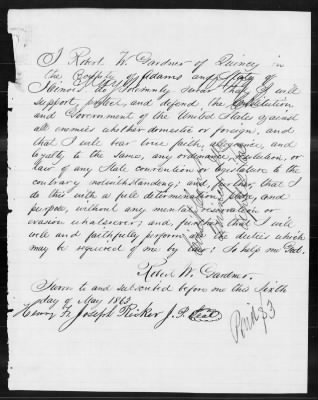 I Robert W. Gardner of Quincy in
the County of Adams and State of
Illinois do solemnly swear that I will
support, protect and defend the Constitution
and Government of the United States against
all enemies whether domestic or foreign, and
that I will bear true faith, allegiance, and
loyalty to the same, any ordinance, resolution, or
law of any State convention or legislature to the
contrary notwithstanding; and, further, that I
do this with a full determination, pledge, and
purpose, without any mental reservation or
evasion whatsoever; and, further, that I will
well and faithfully perform all the duties which
may be required of me by law: So help me God.
Robert W. Gardner.
Sworn to and subscribed before me this Sixth
day of May 1863.
Henry F. Joseph Ricker J. P. Seal